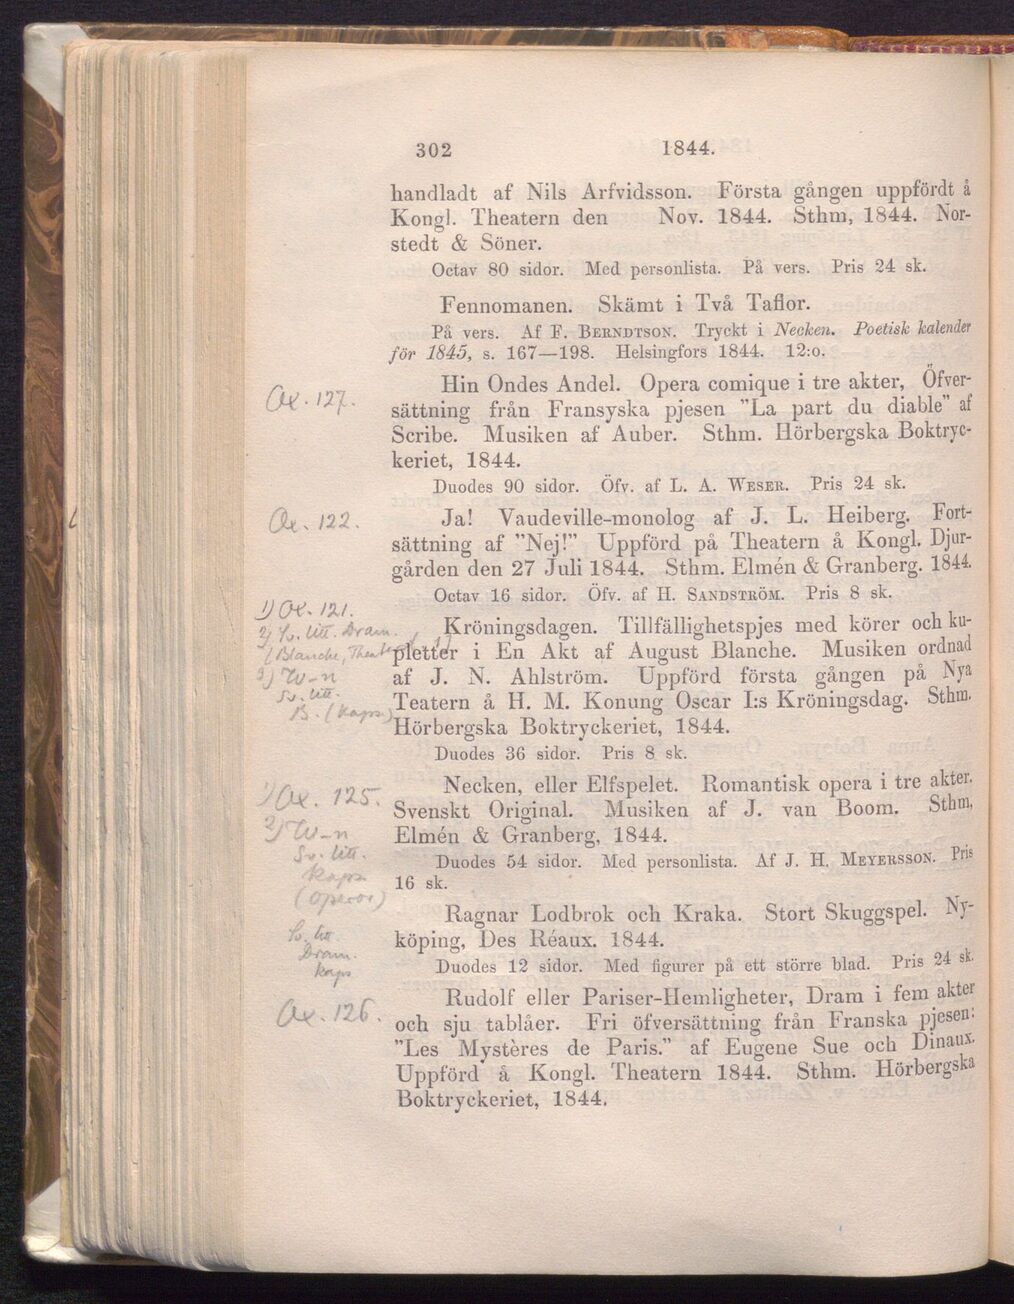 302 1844.
handladt af Nils Arfvidsson. Första gången uppfördt å
Kongl. Theatern den Nov. 1844. Sthm, 1844. Nor-
stedt & Söner.
Octav 80 sidor. Med personlista. På vers. Pris 24 sk.
Fennomanen. Skämt i Två Taflor.
På vers. Af F. BERNDTSON. Tryckt i Necken. Poetisk kalender
för 1845, s. 167—198. Helsingfors 1844. 12:o.
Ox. 127.
Hin Ondes Andel. Opera comique i tre akter, Öfver-
sättning från Fransyska pjesen "La part du diable" af
Scribe. Musiken af Auber. Sthm. Hörbergska Boktryc-
keriet, 1844.
Duodes 90 sidor. Öfv. af L. A. WESER. Pris 24 sk.
Ox. 122.
Ja! Vaudeville-monolog af J. L. Heiberg. Fort-
sättning af "Nej!" Uppförd på Theatern å Kongl. Djur-
gården den 27 Juli 1844. Sthm. Elmén & Granberg. 1844.
Octav 16 sidor. Öfv. af H. SANDSTRÖM. Pris 8 sk.
1) Ox. 121.
2) Sv. litt. Dram.
(Blanche, Theater
3) W-n
Sv. litt.
B. (kaps.)
Kröningsdagen. Tillfällighetspjes med körer och ku-
pletter i En Akt af August Blanche. Musiken ordnad
af J. N. Ahlström. Uppförd första gången på Nya
Teatern å H. M. Konung Oscar I:s Kröningsdag. Sthm.
Hörbergska Boktryckeriet, 1844.
Duodes 36 sidor. Pris 8 sk.
1) Ox. 125.
2) W-n
Sv. litt.
kaps.
(Operor)
Necken, eller Elfspelet. Romantisk opera i tre akter.
Svenskt Original. Musiken af J. van Boom. Sthm,
Elmén & Granberg, 1844.
Duodes 54 sidor. Med personlista. Af J. H. MEYERSSON. Pris
16 sk.
Sv. litt.
Dram.
kaps
Ragnar Lodbrok och Kraka. Stort Skuggspel. Ny-
köping, Des Réaux. 1844.
Duodes 12 sidor. Med figurer på ett större blad. Pris 24 sk.
Ox. 126.
Rudolf eller Pariser-Hemligheter, Dram i fem akter
och sju tablåer. Fri öfversättning från Franska pjesen:
"Les Mystères de Paris." af Eugene Sue och Dinaux.
Uppförd å Kongl. Theatern 1844. Sthm. Hörbergska
Boktryckeriet, 1844.